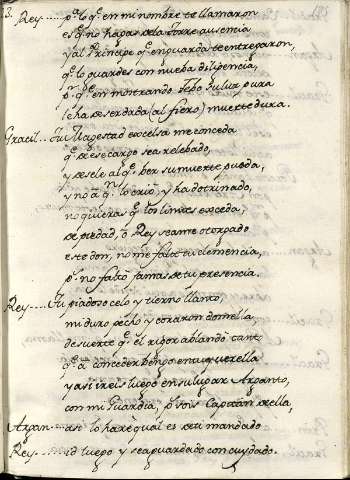 3. Rey..... pª lo q̃ en mi nombre te llamaron
es q̃ no hagas de la torre ausencia
y al Principe q̃ en guarda te entregaron,
q̃ lo guardes con nueba diligencia,
pr q̃ en mostrando Febo su luz pura
le ha de ser dada (al fiero) muerte dura.
Gracil... Tu Magestad excelsa me conceda
q̃ de ese cargo sea relebado,
y dese le a q̃n ber su muerte pueda,
y no a q̃n lo crio, y ha dotrinado,
no quieras q̃ los limites exceda,
de piedad, o Rey seame otorgado
este don, no me falte tu clemencia,
pr no falto jamas de tu presencia.
Rey.... Tu piadoso celo y tierno llanto,
mi duro pecho y coraron domella
de suerte q̃ el rigor ablando tanto
q̃ a conceder bengo en tu querella
y asi ireis luego en su lugar Arpanto,
con mi Guardia, pr sois Capitan della,
Arpan... aso lo hare qual es de tu mandado
Rey... id luego y sea guardado con cuydado.